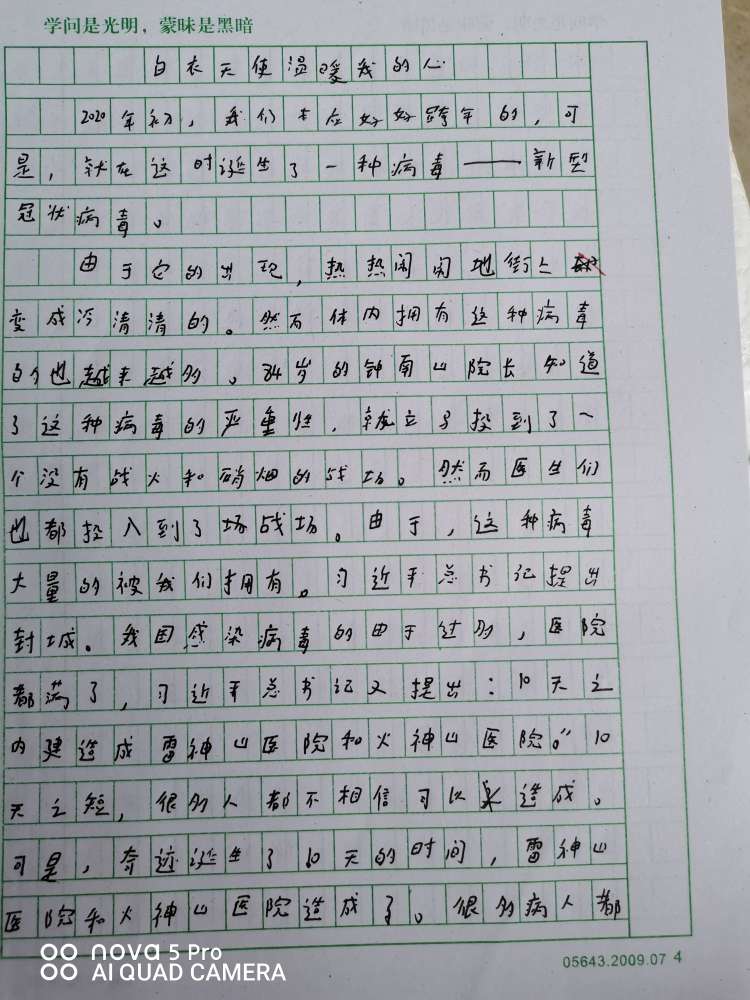 学问是光明，蒙昧是黑暗
白衣天使温暖我的心
2020年初，我们本应好好跨年的，可
是，就在这时诞生了一种病毒——新型
冠状病毒。
由于它的出现，热热闹闹地街上
变成冷清清的。然而体内拥有这种病毒
的人也越来越多。84岁的钟南山院长知道
了这种病毒的严重性，就立身投到了一
个没有战火和硝烟的战场。然而医生们
也都投入到了场战场。由于，这种病毒
大量的被我们拥有。习近平总书记提出
封城。我国感染病毒的由于过多，医院
都满了，习近平总书记又提出：10天之
内建造成雷神山医院和火神山医院。”10
天之短，很多人都不相信可以造成。
可是，奇迹诞生了10天的时间，雷神山
医院和火神山医院造成了。很多病人都
nova 5 Pro
AI QUAD CAMERA
05643.2009.07 4